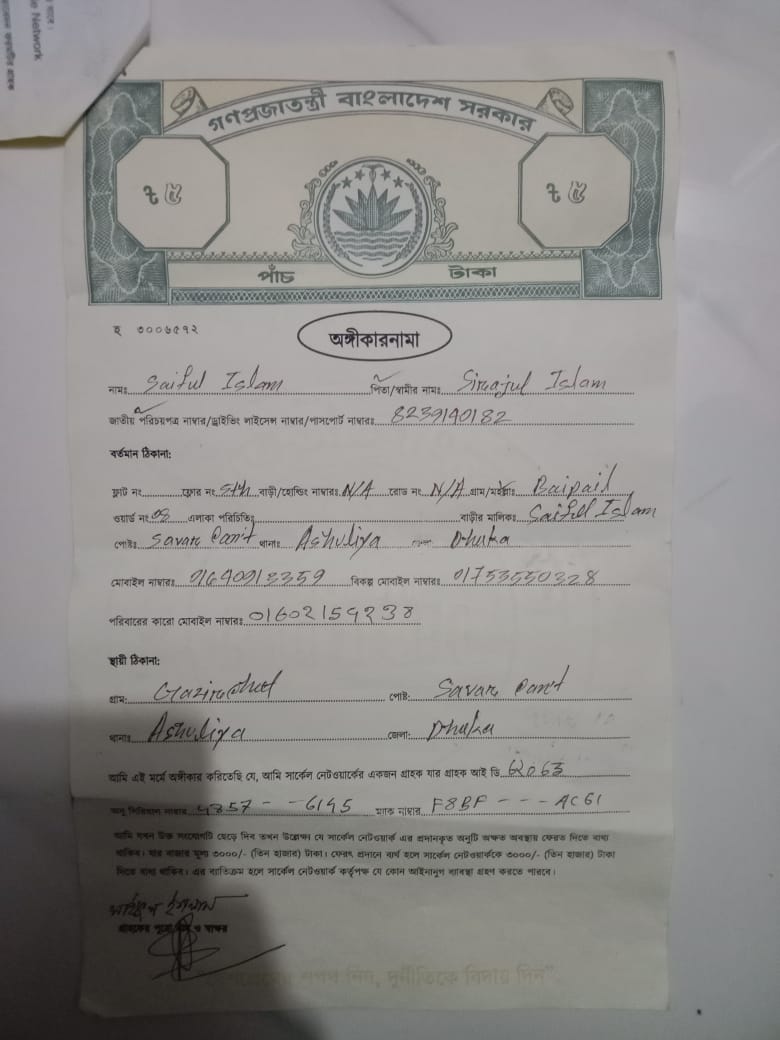 গণপ্রজাতন্ত্রী বাংলাদেশ সরকার
৳ ৫ ৳ ৫
পাঁচ টাকা
হ ৩০০৬৫৭২
অঙ্গীকারনামা
নামঃ Saiful Islam পিতা/স্বামীর নামঃ Sirajul Islam
জাতীয় পরিচয়পত্র নাম্বার/ড্রাইভিং লাইসেন্স নাম্বার/পাসপোর্ট নাম্বারঃ 8239140182
বর্তমান ঠিকানা:
ফ্লাট নং ফ্লোর নং 5th বাড়ী/হোল্ডিং নাম্বারঃ N/A রোড নং N/A গ্রাম/মহল্লাঃ Baipail
ওয়ার্ড নং 08 এলাকা পরিচিতিঃ বাড়ীর মালিকঃ Saiful Islam
পোষ্টঃ Savar Can't থানাঃ Ashuliya Dhaka
মোবাইল নাম্বারঃ 01640913359 বিকল্প মোবাইল নাম্বারঃ 01753550328
পরিবারের কারো মোবাইল নাম্বারঃ 01602159238
স্থায়ী ঠিকানা:
গ্রামঃ পোষ্ট: Savar Can't
থানাঃ Ashuliya জেলা: Dhaka
আমি এই মর্মে অঙ্গীকার করিতেছি যে, আমি সার্কেল নেটওয়ার্কের একজন গ্রাহক যার গ্রাহক আই ডি 62063
অনু সিরিয়াল নাম্বার 4357 - - 6145 ম্যাক নাম্বার F8BF - - - AC61
আমি যখন উক্ত সংযোগটি ছেড়ে দিব তখন উল্লেখ্য যে সার্কেল নেটওয়ার্ক এর প্রদানকৃত অনুটি অক্ষত অবস্থায় ফেরত দিতে বাধ্য
থাকিব। যার বাজার মূল্য ৩০০০/- (তিন হাজার) টাকা। ফেরৎ প্রদানে ব্যর্থ হলে সার্কেল নেটওয়ার্ককে ৩০০০/- (তিন হাজার) টাকা
দিতে বাধ্য থাকিব। এর ব্যতিক্রম হলে সার্কেল নেটওয়ার্ক কর্তৃপক্ষ যে কোন আইনানুগ ব্যবস্থা গ্রহণ করতে পারবে।
সাইফুল ইসলাম
গ্রাহকের পুরো নাম ও স্বাক্ষর
নিন, দুর্নীতিকে বিদায় দিন"